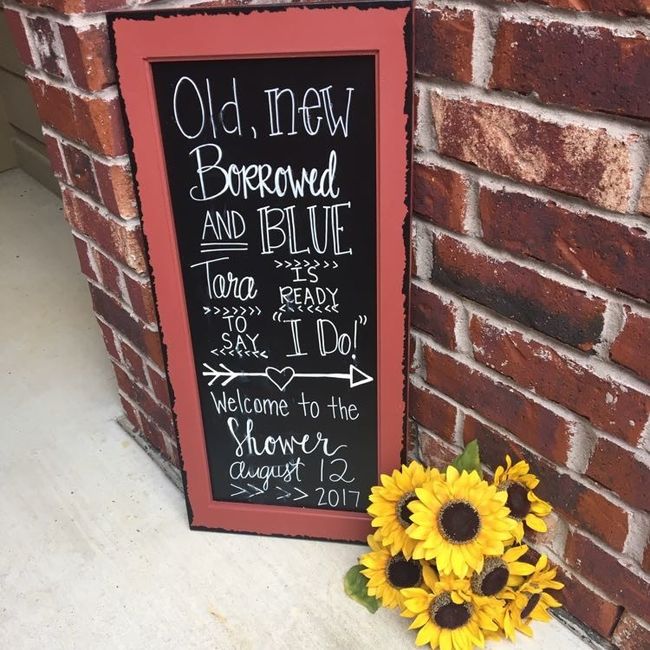 Old, new
Borrowed
AND BLUE
Tara IS READY
TO SAY "I Do!"
Welcome to the
Shower
august 12
>> >> >> 2017